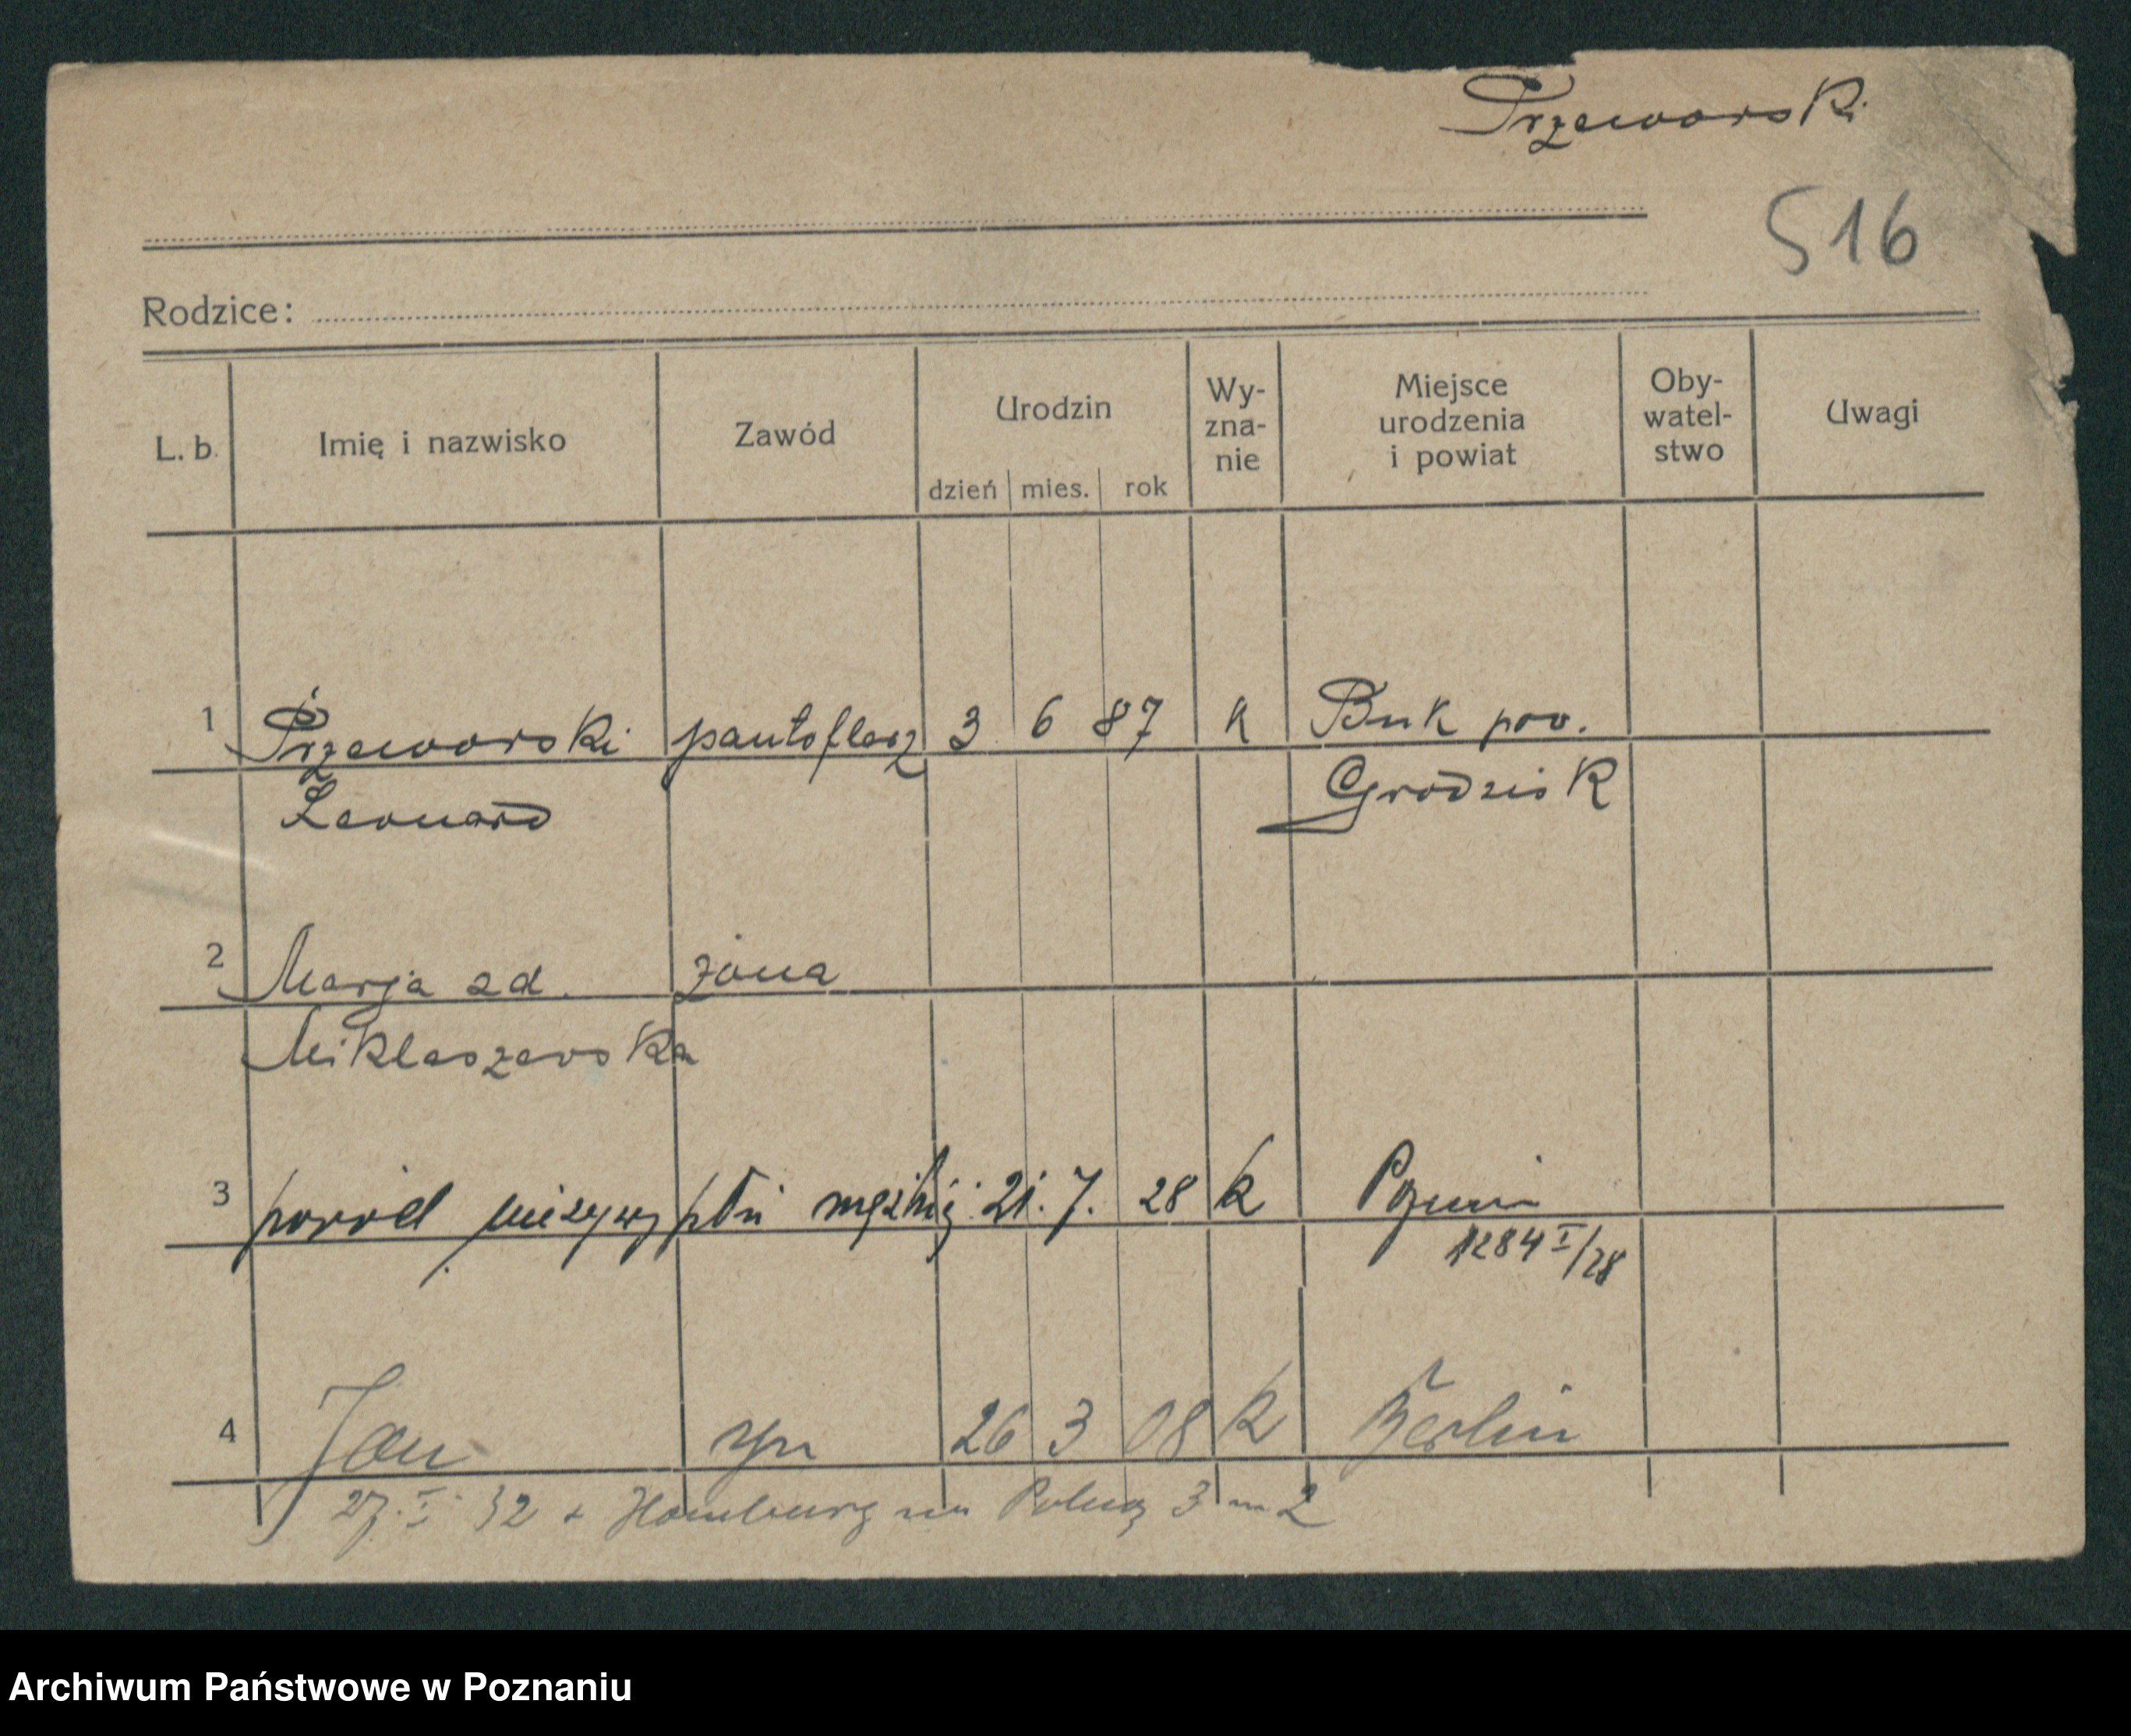 Przeworski
516
Rodzice:
L. b. Imię i nazwisko Zawód Urodzin dzień mies. rok Wy-zna-nie Miejsce urodzenia i powiat Oby-watel-stwo Uwagi
1 Przeworski pantoflarz 3 6 87 k Buk pow.
Leonard Grodzisk
2 Marja zd. żona
Miklaszewska
3 poród nieżywy płci męskiej 21. 7. 28 k Poznań
1284 I/28
4 Jan syn 26 3 08 k Berlin
27. I. 32 z Hamburg na Polną 3 m 2
Archiwum Państwowe w Poznaniu